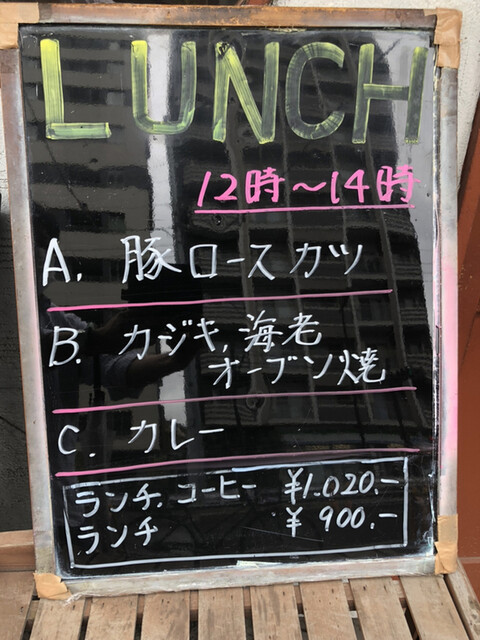 LUNCH
12時～14時
A. 豚ロースカツ
B. カジキ,海老
オーブン焼
C. カレー
ランチ.コーヒー ¥1.020.-
ランチ ¥900.-